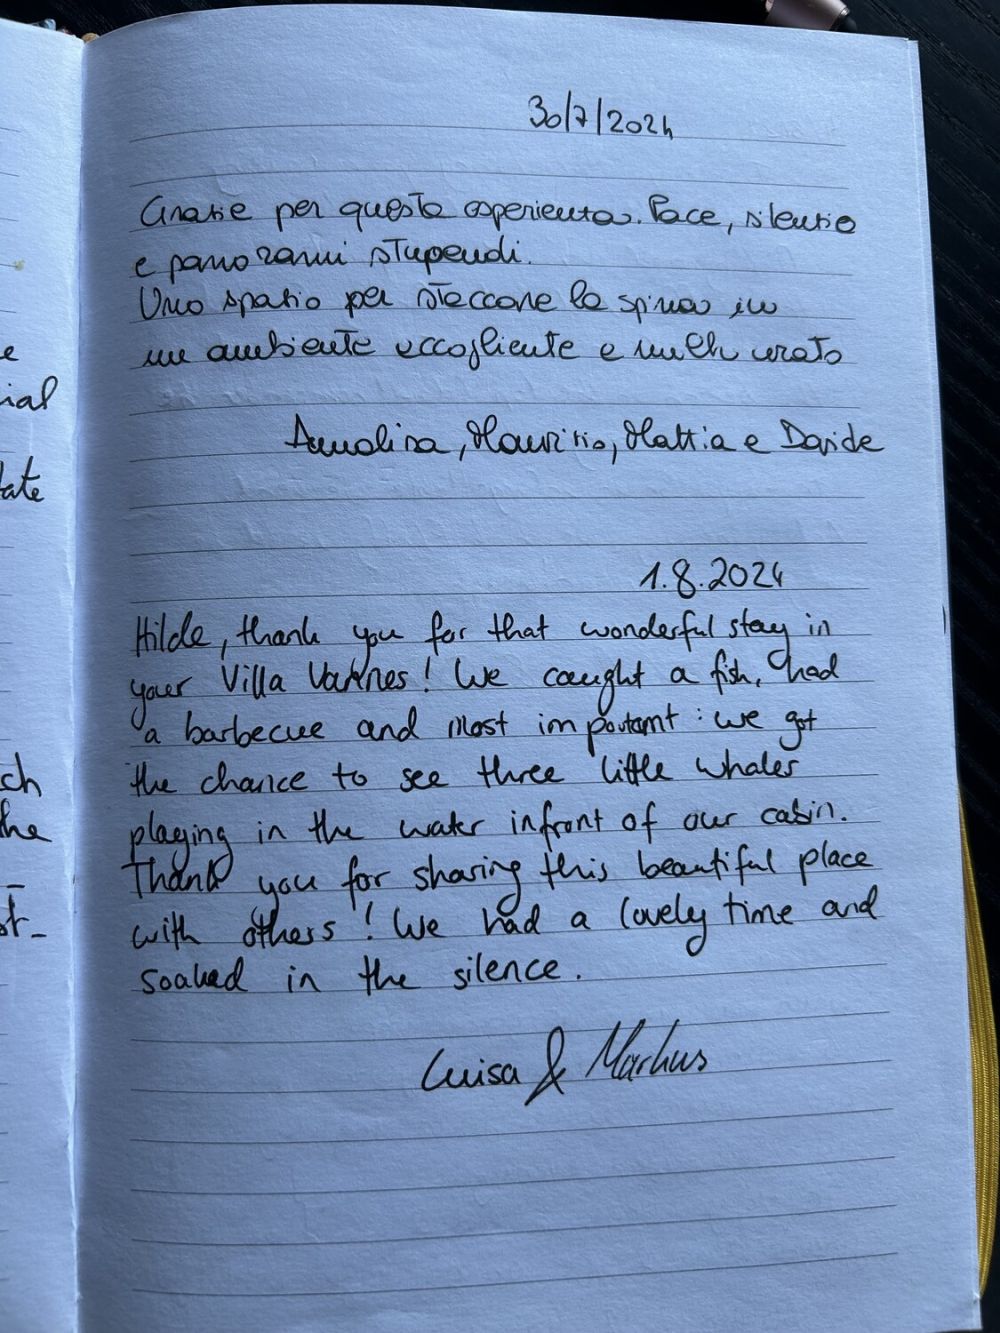 e
ial
tate
ch
he
-
st-
30/7/2024
Grazie per questa esperienza. Pace, silenzio
e panorami stupendi.
Uno spazio per staccare la spina in
un ambiente accogliente e molto curato
Annalisa, Maurizio, Mattia e Davide
1.8.2024
Hilde, thank you for that wonderful stay in
your Villa Varnes! We caught a fish, had
a barbecue and most important: we got
the chance to see three little whales
playing in the water infront of our cabin.
Thank you for sharing this beautiful place
with others! We had a lovely time and
soaked in the silence.
Luisa & Markus